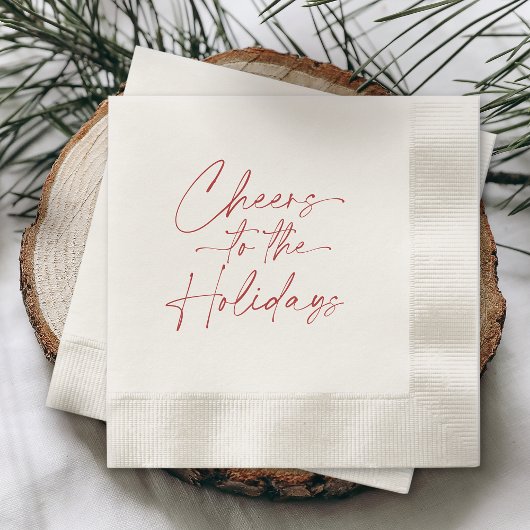 Cheers
to the
Holidays